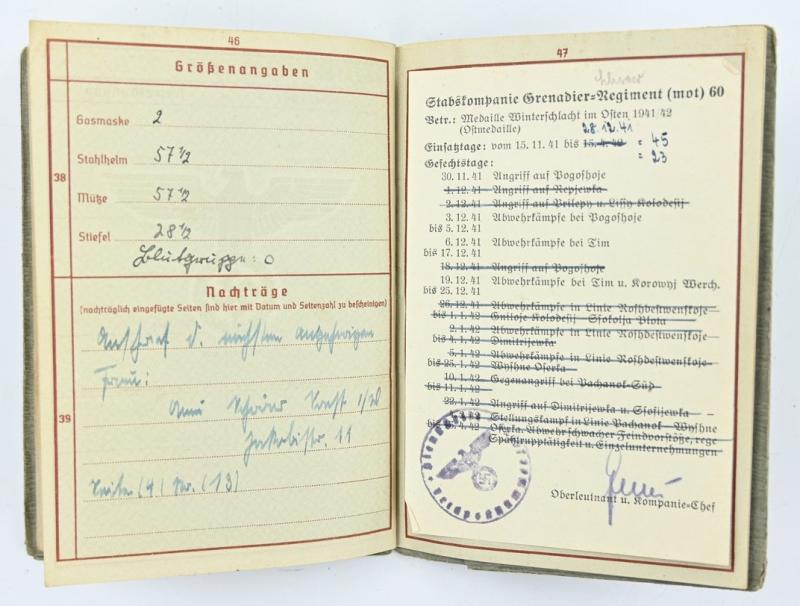 46
Größenangaben
38
Gasmaske 2
Stahlhelm 57 1/2
Mütze 57 1/2
Stiefel 28 1/2
Blutgruppe: O
Nachträge
(nachträglich eingefügte Seiten sind hier mit Datum und Seitenzahl zu bescheinigen)
39
Anschrift d. nächsten Angehörigen
Frau:
Soest i/W
11
47
Stabskompanie Grenadier-Regiment (mot) 60
Betr.: Medaille Winterschlacht im Osten 1941/42
(Ostmedaille)
28.12.41
Einsatztage: vom 15.11.41 bis 15.4.42 = 45
Gefechtstage: = 23
30.11.41 Angriff auf Pogoshoje
1.12.41 Angriff auf Repjewka
2.12.41 Angriff auf Prilepy u. Lissy Kolodesij
3.12.41 Abwehrkämpfe bei Pogoshoje
bis 5.12.41
6.12.41 Abwehrkämpfe bei Tim
bis 17.12.41
18.12.41 Angriff auf Pogoshoje
19.12.41 Abwehrkämpfe bei Tim u. Korowyj Werch.
bis 25.12.41
26.12.41 Abwehrkämpfe in Linie Roshdestwenskoje-
bis 1.1.42 Gniloje Kolodesij - Sfokolja Plota
2.1.42 Abwehrkämpfe in Linie Roshdestwenskoje
bis 4.1.42 Dimitrijewka
5.1.42 Abwehrkämpfe in Linie Roshdestwenskoje-
bis 25.1.42 Wyshne Oserka
10.1.42 Gegenangriff bei Pachanok-Süd
bis 11.1.42
22.1.42 Angriff auf Dimitrijewka u. Sfofijewka
Stellungskampf in Linie Pachanok - Wyshne
Oserka. Abwehr schwacher Feindvorstöße, rege
Spähtrupptätigkeit u. Einzelunternehmungen
Oberleutnant u. Kompanie-Chef